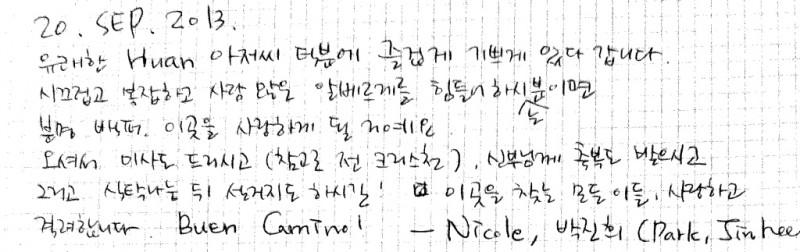 20. SEP. 2013.
유쾌한 Huan 아저씨 덕분에 즐겁게 기쁘게 있다 갑니다.
시끄럽고 복잡하고 사람 많은 알베르게를 힘들어 하시는 분이면
분명 백퍼. 이곳을 사랑하게 될 거예요.
오셔서 미사도 드리시고 (참고로 전 크리스천), 신부님께 축복도 받으시고
그리고 식탁나눔 뒤 설거지도 하시길! 이곳을 찾는 모든 이들, 사랑하고
격려합니다. Buen Camino! - Nicole, 박진희 (Park, Jinhee